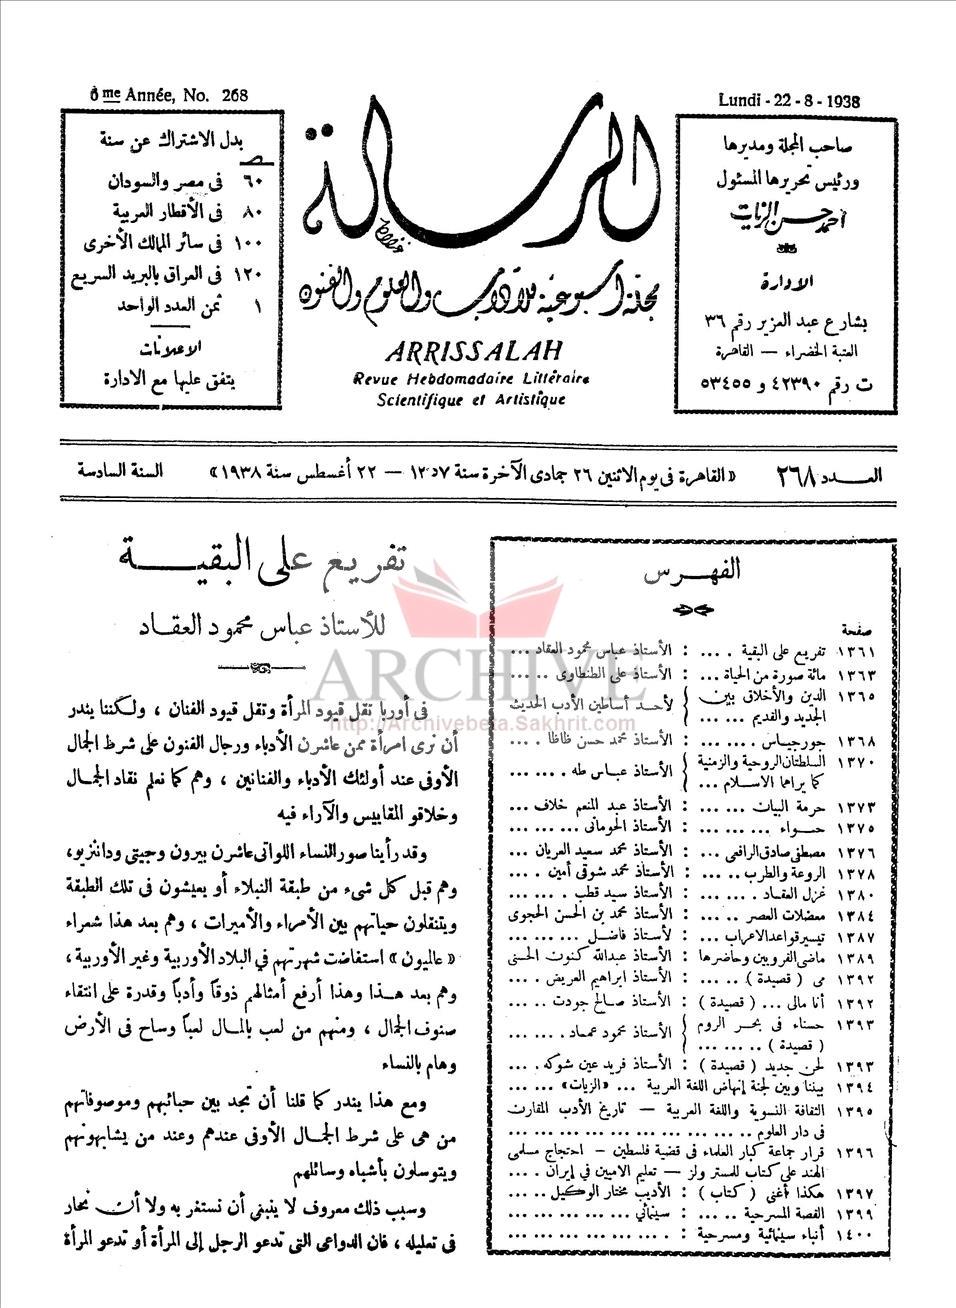 6me Année, No. 268
Lundi - 22 - 8 - 1938
صاحب المجلة ومديرها
ورئيس تحريرها المسئول
احمد حسن الزيات
الادارة
بشارع عبد العزيز رقم ٣٦
العتبة الخضراء — القاهرة
ت رقم ٤٢٣٩٠ و ٥٣٤٥٥
الرسالة
مجلة أسبوعية للآداب والعلوم والفنون
ARRISSALAH
Revue Hebdomadaire Littéraire
Scientifique et Artistique
بدل الاشتراك عن سنة
٦٠ فى مصر والسودان
٨٠ فى الأقطار العربية
١٠٠ فى سائر الممالك الأخرى
١٢٠ فى العراق بالبريد السريع
١ ثمن العدد الواحد
الاعلانات
يتفق عليها مع الادارة
العـــدد ٢٦٨
«القاهرة فى يوم الاثنين ٢٦ جمادى الآخرة سنة ١٣٥٧ — ٢٢ أغسطس سنة ١٩٣٨»
السنة السادسة
الفهـرس
صفحة
١٣٦١ تفريع على البقية . ... : الأستاذ عباس محمود العقاد ...
١٣٦٣ مائة صورة من الحياة ... : الأستاذ على الطنطاوى .. ...
١٣٦٥ الدين والأخلاق بين الجديد والقديم ... ... } لأحد أساطين الأدب الحديث
١٣٦٨ جورجياس. ... ... : الأستاذ محمد حسن ظاظا . ...
١٣٧٠ السلطتان الروحية والزمنية كما يراهما الاسلام ... } الأستاذ عباس طه . ... ...
١٣٧٣ حرمة البيات ... ... : الأستاذ عبد المنعم خلاف ...
١٣٧٥ حــواء ... ... ... : الأستاذ الحومانى ... ... ...
١٣٧٦ مصطفى صادق الرافعى ... : الأستاذ محمد سعيد العريان ...
١٣٧٨ الروعة والطرب.. ... : الأستاذ محمد شوقى أمين . ...
١٣٨٠ غزل العقـاد . ... ... : الأستاذ سيد قطب . ... ...
١٣٨٤ معضلات العصر .. ... : الأستاذ محمد بن الحسن الحجوى
١٣٨٧ تيسير قواعد الاعراب ... : لأستاذ فاضل ... ... ...
١٣٨٩ ماضى القرويين وحاضرها : الأستاذ عبدالله كنون الحسنى
١٣٩٢ مى ( قصيدة ) .. ... : الأستاذ ابراهيم العريض . ...
١٣٩٢ أنا مالى ... ( قصيدة ) : الأستاذ صالح جودت .. ...
١٣٩٣ حسناء فى بحر الروم ( قصيدة ) .. ... ... } الأستاذ محمود عمـاد . ... ...
١٣٩٣ لحن جديد ( قصيدة ) : الأستاذ فريد عين شوكه . ...
١٣٩٤ بيننا وبين لجنة إنهاض اللغة العربية ... «الزيات» ... ...
١٣٩٥ الثقافة النسوية واللغة العربية — تاريخ الأدب المقارن
فى دار العلوم .. ... ... ... ... ... ... ...
١٣٩٦ قرار جماعة كبار العلماء فى قضية فلسطين — احتجاج مسلمى
الهند على كتاب للمستر ولز — تعليم الاميين في إيران . ...
١٣٩٧ هكذا أغنى ( كتاب ) : الأديب مختار الوكيل .. ...
١٣٩٩ القصة المسرحية .. ... : سينمائي ... ... ... ...
١٤٠٠ أنباء سينمائية ومسرحية : . ... ... ... ... ...
تفريع على البقيـــة
للأستاذ عباس محمود العقاد
فى أوربا تقل قيود المرأة وتقل قيود الفنان ، ولكننا يندر
أن نرى امرأة ممن عاشرن الأدباء ورجال الفنون على شرط الجمال
الأوفى عند أولئك الأدباء والفنانين ، وهم كما نعلم نقاد الجمـال
وخلاقو المقاييس والآراء فيه
وقد رأينا صور النساء اللواتى عاشرن بيرون وجيتى ودانتزيو،
وهم قبل كل شىء من طبقة النبلاء أو يعيشون فى تلك الطبقة
ويتنقلون حياتهم بين الأمراء والأميرات ، وهم بعد هذا شعراء
«عالميون» استفاضت شهرتهم فى البلاد الأوربية وغير الأوربية ،
وهم بعد هـذا وهذا أرفع أمثالهم ذوقاً وأدباً وقدرة على انتقاء
صنوف الجمال ، ومنهم من لعب بالمـال لعباً وساح فى الأرض
وهام بالنساء
ومع هذا يندر كما قلنا أن نجد بين حبائبهم وموصوفاتهم
من هى على شرط الجمـال الأوفى عندهم وعند من يشابهونهم
ويتوسلون بأشباه وسائلهم
وسبب ذلك معروف لا ينبغى أن نستغربه ولا أن نحار
فى تعليله ، فان الدواعى التى تدعو الرجل إلى المرأة أو تدعو المرأة
ARCHIVE
http://Archivebeta.Sakhrit.com